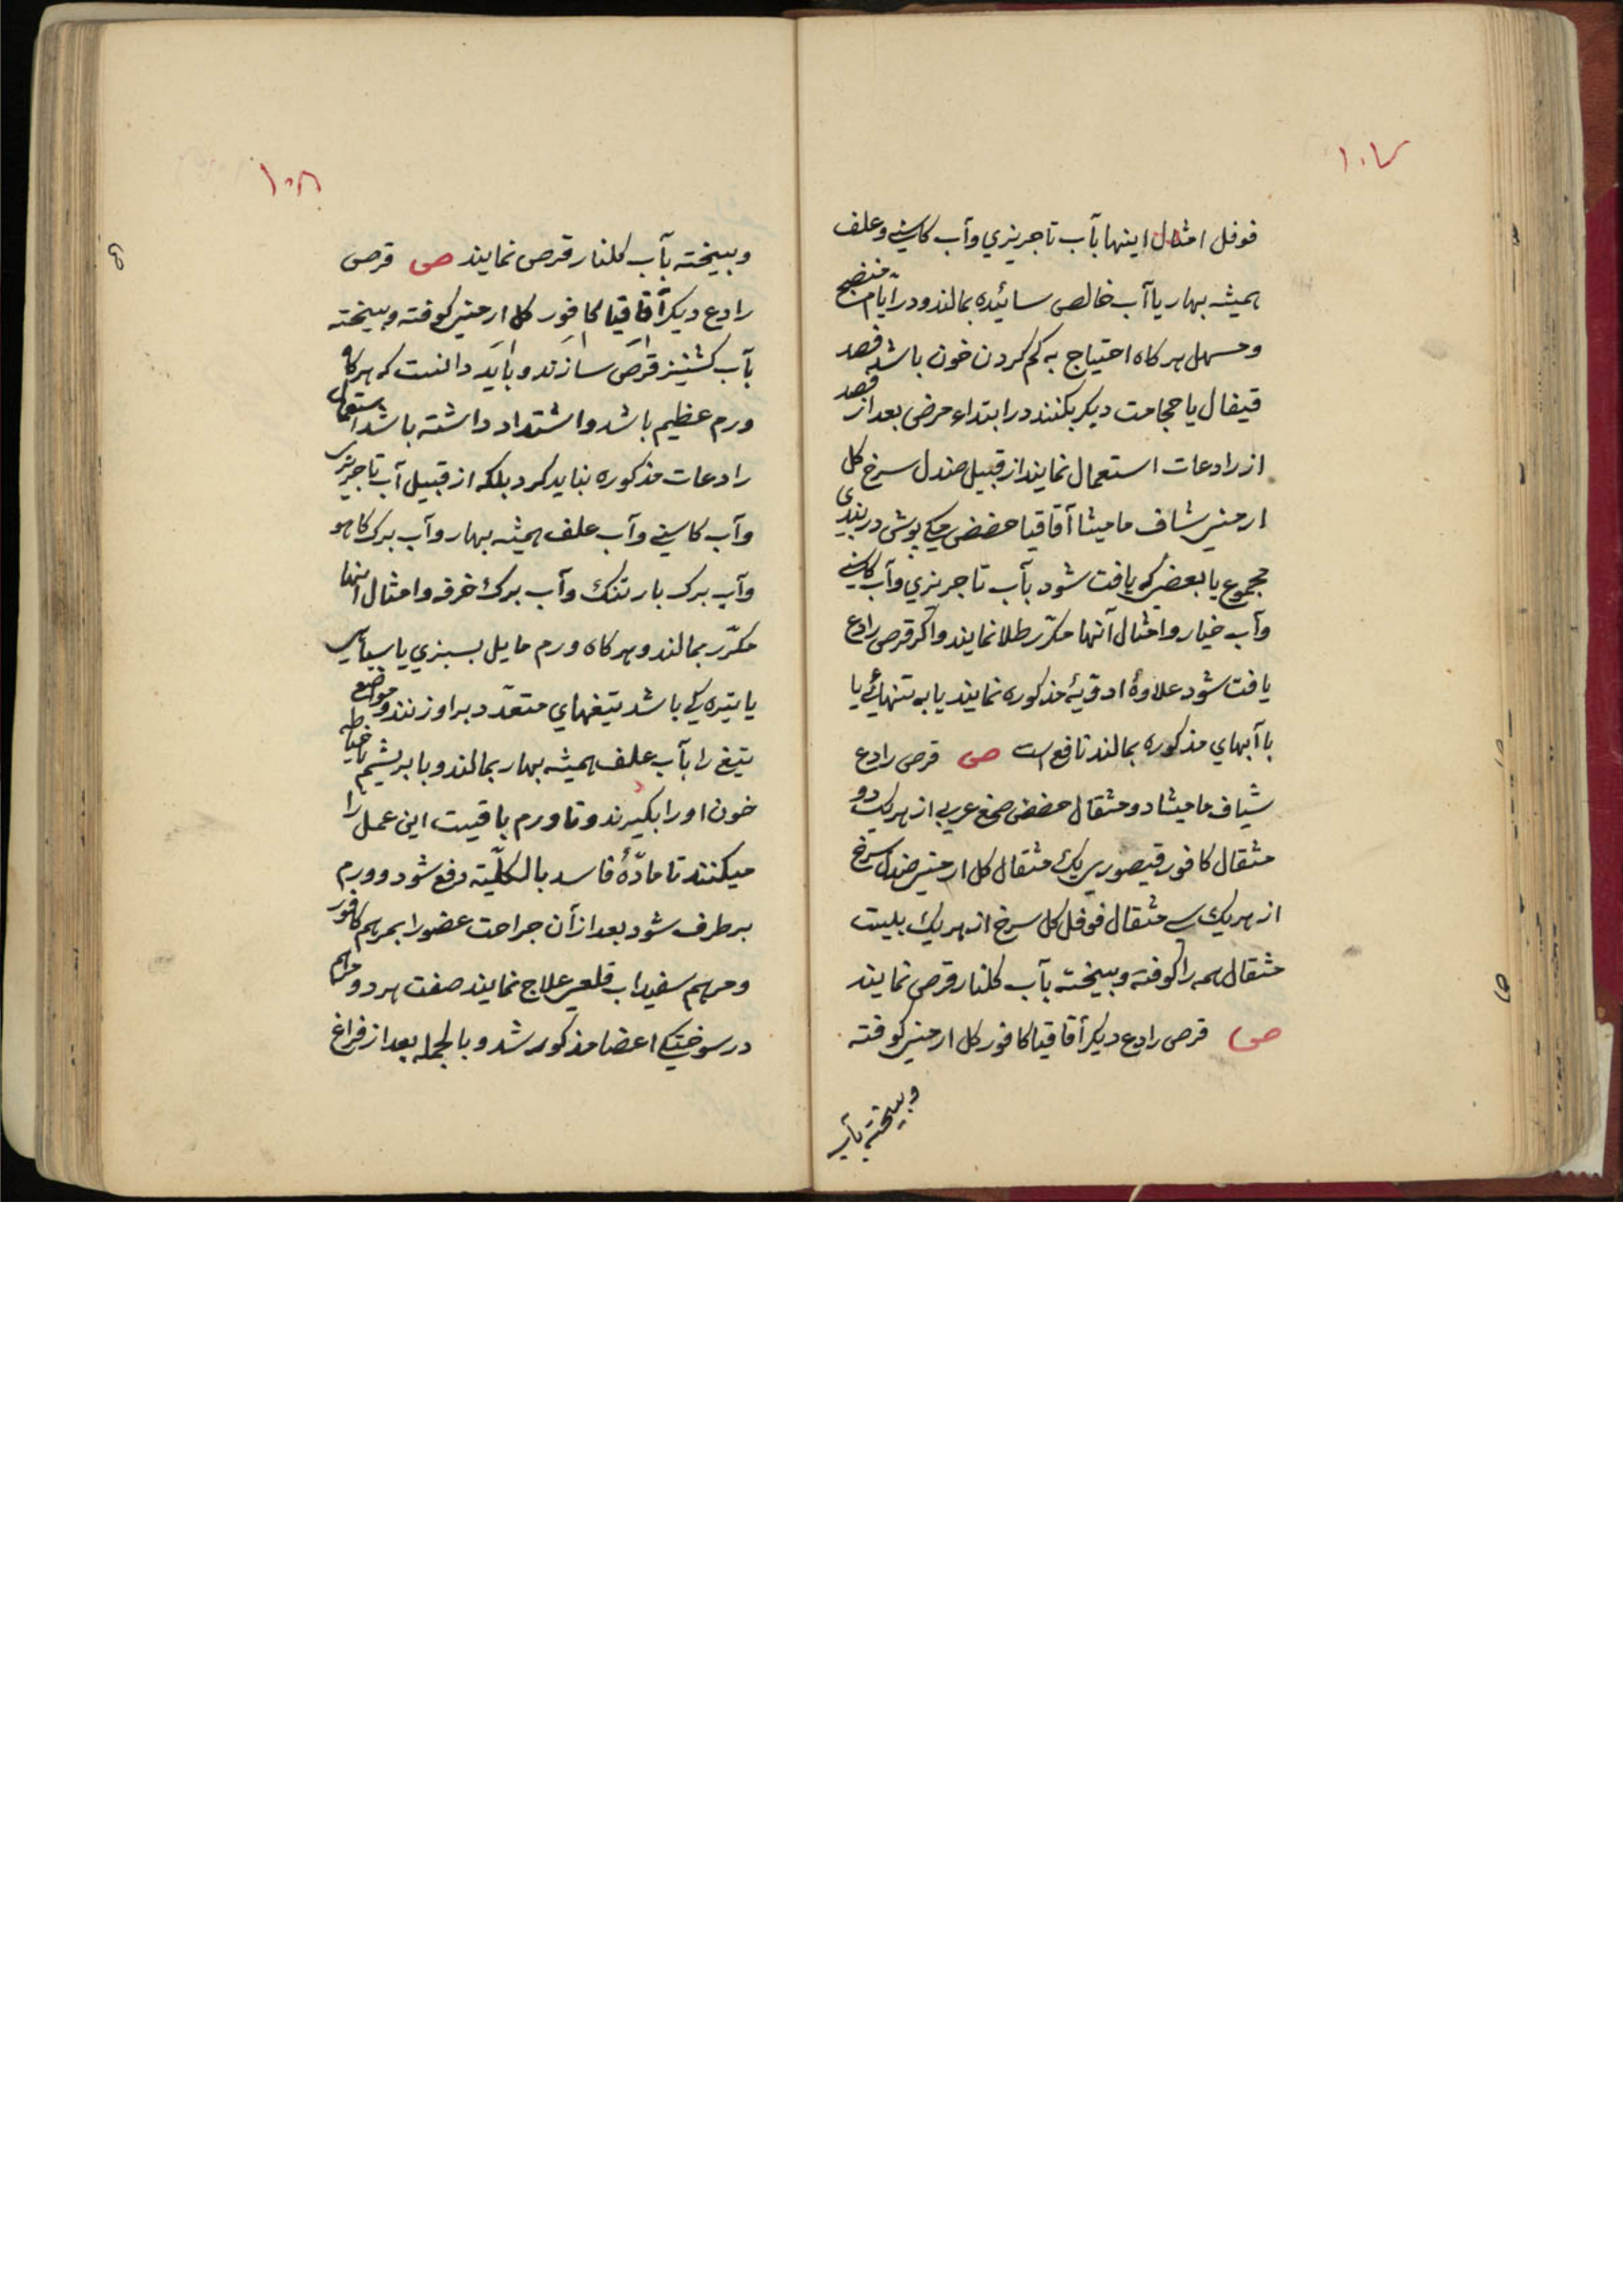 ۱۰۷
فوفل امثال اینها بآب تاجریزي وآب کاسنے وعلف
همیشه بهار یا آب خالص سائیده بمالند ودر ایّام منضج
ومسهل هرکاه احتیاج به کم کردن خون باشد فصد
قیفال یا حجامت دیکر بکنند در ابتداء مرض بعد از فصد
از رادعات استعمال نمایند از قبیل صندل سرخ کل
ارمنی شاف مامیثا آقاقیا حضض مکے بوش دربندی
مجموع یا بعضی که یافت شود بآب تاجریزي وآب کاسنے
وآب خیار وامثال آنها مکرّر طلا نمایند واکر قرص رادع
یافت شود علاوهٔ ادویهٔ مذکوره نمایند یا به تنهائے یا
با آبهاي مذکوره بمالند نافع است ص قرص رادع
شیاف مامیثا دو مثقال حضض صمغ عربی از هریک دو
مثقال کافور قیصوری یک مثقال کل ارمنی صندل سرخ
از هریک سے مثقال فوفل کل سرخ از هریک بیست
مثقال همه را کوفته وبیخته بآب کلنار قرص نمایند
ص قرص رادع دیکر أقاقیا کافور کل ارمنی کوفته
وبیخته بآب
۱۰۸
وبیخته بآب کلنار قرص نمایند ص قرص
رادع دیکر آقاقیا کافور کل ارمنی کوفته وبیخته
بآب کشنیز قرص سازند وباید دانست که هرکاه
ورم عظیم باشد واشتداد داشته باشد استعمال
رادعات مذکوره نباید کرد بلکه از قبیل آب تاجریزی
وآب کاسنے وآب علف همیشه بهار وآب برک کاهو
وآب برک بارتنک وآب برک خرفه وامثال اینها
مکرّر بمالند وهرکاه ورم مایل بسبزي یا سیاهی
یا تیره کے باشد تیغهاي متعدّد بر او زنند ومواضع
تیغ را بآب علف همیشه بهار بمالند وبا بریشم خیاطه
خون او را بکیرند وتا ورم باقیست این عمل را
میکنند تا مادّهٔ فاسد بالکلّیّه دفع شود وورم
برطرف شود بعد از آن جراحت عضو را بمرهم کافور
ومرهم سفیداب قلعی علاج نمایند صفت هر دو مرهم
در سوختکے اعضا مذکور شد وبالجمله بعد از فراغ